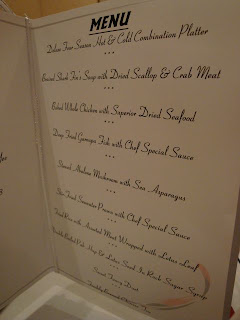 MENU
Deluxe Four Season Hot & Cold Combination Platter
***
Braised Shark Fin's Soup with Dried Scallop & Crab Meat
***
Baked Whole Chicken with Superior Dried Seafood
***
Deep Fried Garoupa Fish with Chef Special Sauce
***
Abalone Mushroom with Sea Asparagus
***
Fried Prawns with Chef Special Sauce
***
Fried Rice with Assorted Meat Wrapped with Lotus Leaf
***
& Lotus Seed In Rock Sugar Syrup
***
Sweet Fancy Duet
***